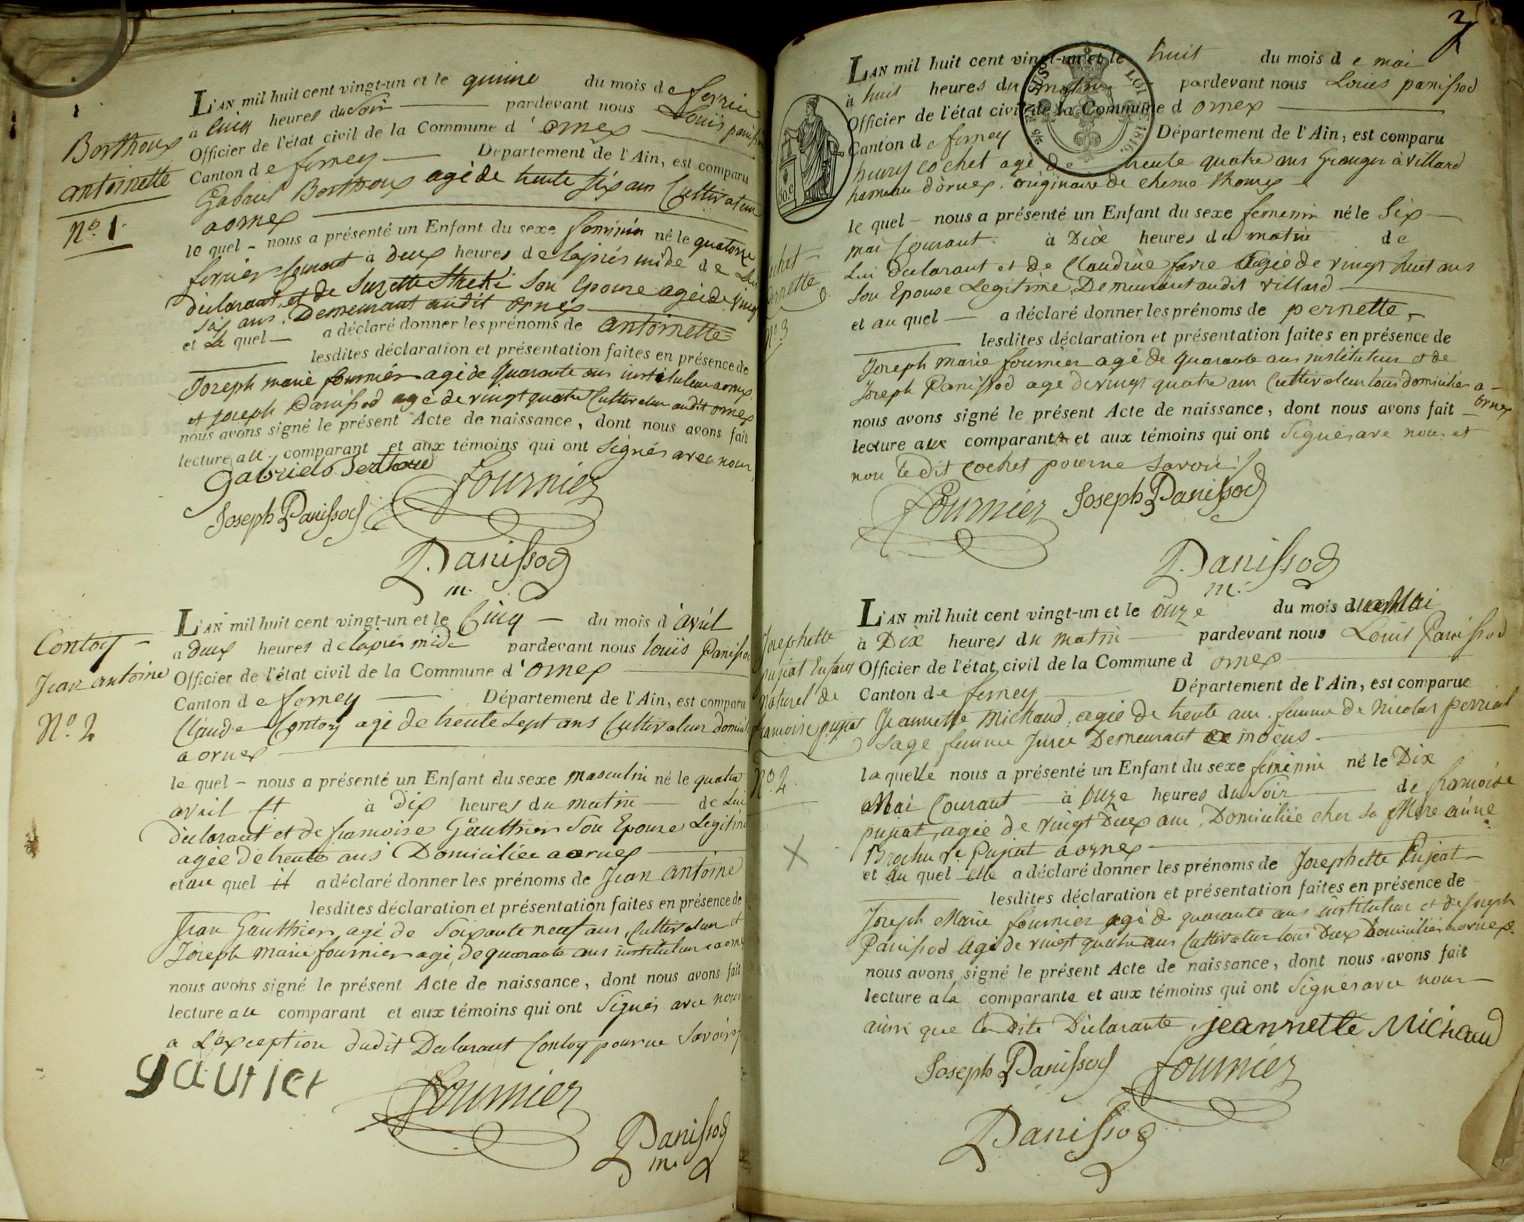 1
Bortheux
antoinette
N.º 1.
L'AN mil huit cent vingt-un et le quinze du mois de fevrier
à Cinq heures du soir pardevant nous Louis panissod
Officier de l'état civil de la Commune d'ornex
Canton de ferney Département de l'Ain, est comparu
Gabriel Bortheux agé de trente six ans Cultivateur
a ornex
le quel nous a présenté un Enfant du sexe feminin né le quatorze
fevrier courant à deux heures de laprés midé de Lui
déclarant et de Suzette Son Epouse agée de vingt
six ans. Demeurant audit ornex
et Le quel a déclaré donner les prénoms de antoinette
lesdites déclaration et présentation faites en présence de
Joseph marie fournier agé de quarante ans instituteur a ornex
et joseph Panissod agé de vingt quatre Cultivateur audit ornex
nous avons signé le présent Acte de naissance, dont nous avons fait
lecture au comparant et aux témoins qui ont Signés avec nous
Gabriel Bortheux
fournier
Joseph Panissod
Panissod
m.
Contoy
Jean antoine
N.º 2
L'AN mil huit cent vingt-un et le Cinq du mois d'avril
a deux heures de lapres midé pardevant nous louis Panissod
Officier de l'état civil de la Commune d'ornex
Canton de ferney Département de l'Ain, est comparu
Claude Contoy agé de trente sept ans Cultivateur domicilié
a ornex
le quel nous a présenté un Enfant du sexe masculin né le quatre
avril à dix heures du matin de Lui
déclarant et de françoise Gauthier Son Epouse Legitime
agée de trente ans Domiciliée a ornex
et au quel il a déclaré donner les prénoms de Jean antoine
lesdites déclaration et présentation faites en présence de
Jean Gauthier agé de Soixante neuf ans Cultivateur et
Joseph marie fournier agé de quarante ans instituteur a ornex
nous avons signé le présent Acte de naissance, dont nous avons fait
lecture au comparant et aux témoins qui ont Signés avec nous
a L'exception dudit Declarant Contoy pour ne Savoir
gautier
fournier
Panissod
m.
2
LOI
1816.
L'AN mil huit cent vingt-un et le huit du mois de mai
à huit heures du matin pardevant nous Louis panissod
Officier de l'état civil de la Commune d ornex
Canton de ferney Département de l'Ain, est comparu
henry Cochet agé de trente quatre ans Granger à Villard
hameau d'ornex. originaire de
le quel nous a présenté un Enfant du sexe feminin né le Six
mai Courant à Dix heures du matin de
Lui declarant et de Claudine favre agée de vingt huit ans
Son Epouse Legitime, Demeurant audit villard
et au quel a déclaré donner les prénoms de pernette
lesdites déclaration et présentation faites en présence de
Joseph marie fournier agé de quarante ans instituteur et de
Joseph Panissod agé de vingt quatre ans Cultivateur tous domiciliés a
ornex
nous avons signé le présent Acte de naissance, dont nous avons fait
lecture aux comparants et aux témoins qui ont Signés avec nous et
non le dit Cochet pour ne Savoir
Cochet
pernette
N.º 3
Fournier Joseph Panissod
Panissod
m.
Josephette
pujat Enfant
Naturel de
francoise pujat
N.º 2
L'AN mil huit cent vingt-un et le onze du mois de Mai
à Dix heures du matin pardevant nous Louis Panissod
Officier de l'état civil de la Commune d ornex
Canton de ferney Département de l'Ain, est comparue
Jeannette Michaud, agée de trente ans femme de Nicolas perréal
Sage femme Jurée Demeurant a moëns
laquelle nous a présenté un Enfant du sexe feminin né le Dix
Mai Courant à onze heures du Soir de francoise
pujat, agée de vingt Deux ans, Domiciliée chez sa Mere
Pujat a ornex
et au quel elle a déclaré donner les prénoms de Josephette Pujeat
lesdites déclaration et présentation faites en présence de
Joseph Marie fournier agé de quarante ans instituteur et de Joseph
Panissod agé de vingt quatre ans Cultivateur tous Deux Domiciliés a ornex
nous avons signé le présent Acte de naissance, dont nous avons fait
lecture a la comparante et aux témoins qui ont Signés avec nous
ainsi que la dite Declarante, jeannette Michaud
Joseph Panissod fournier
Panissod